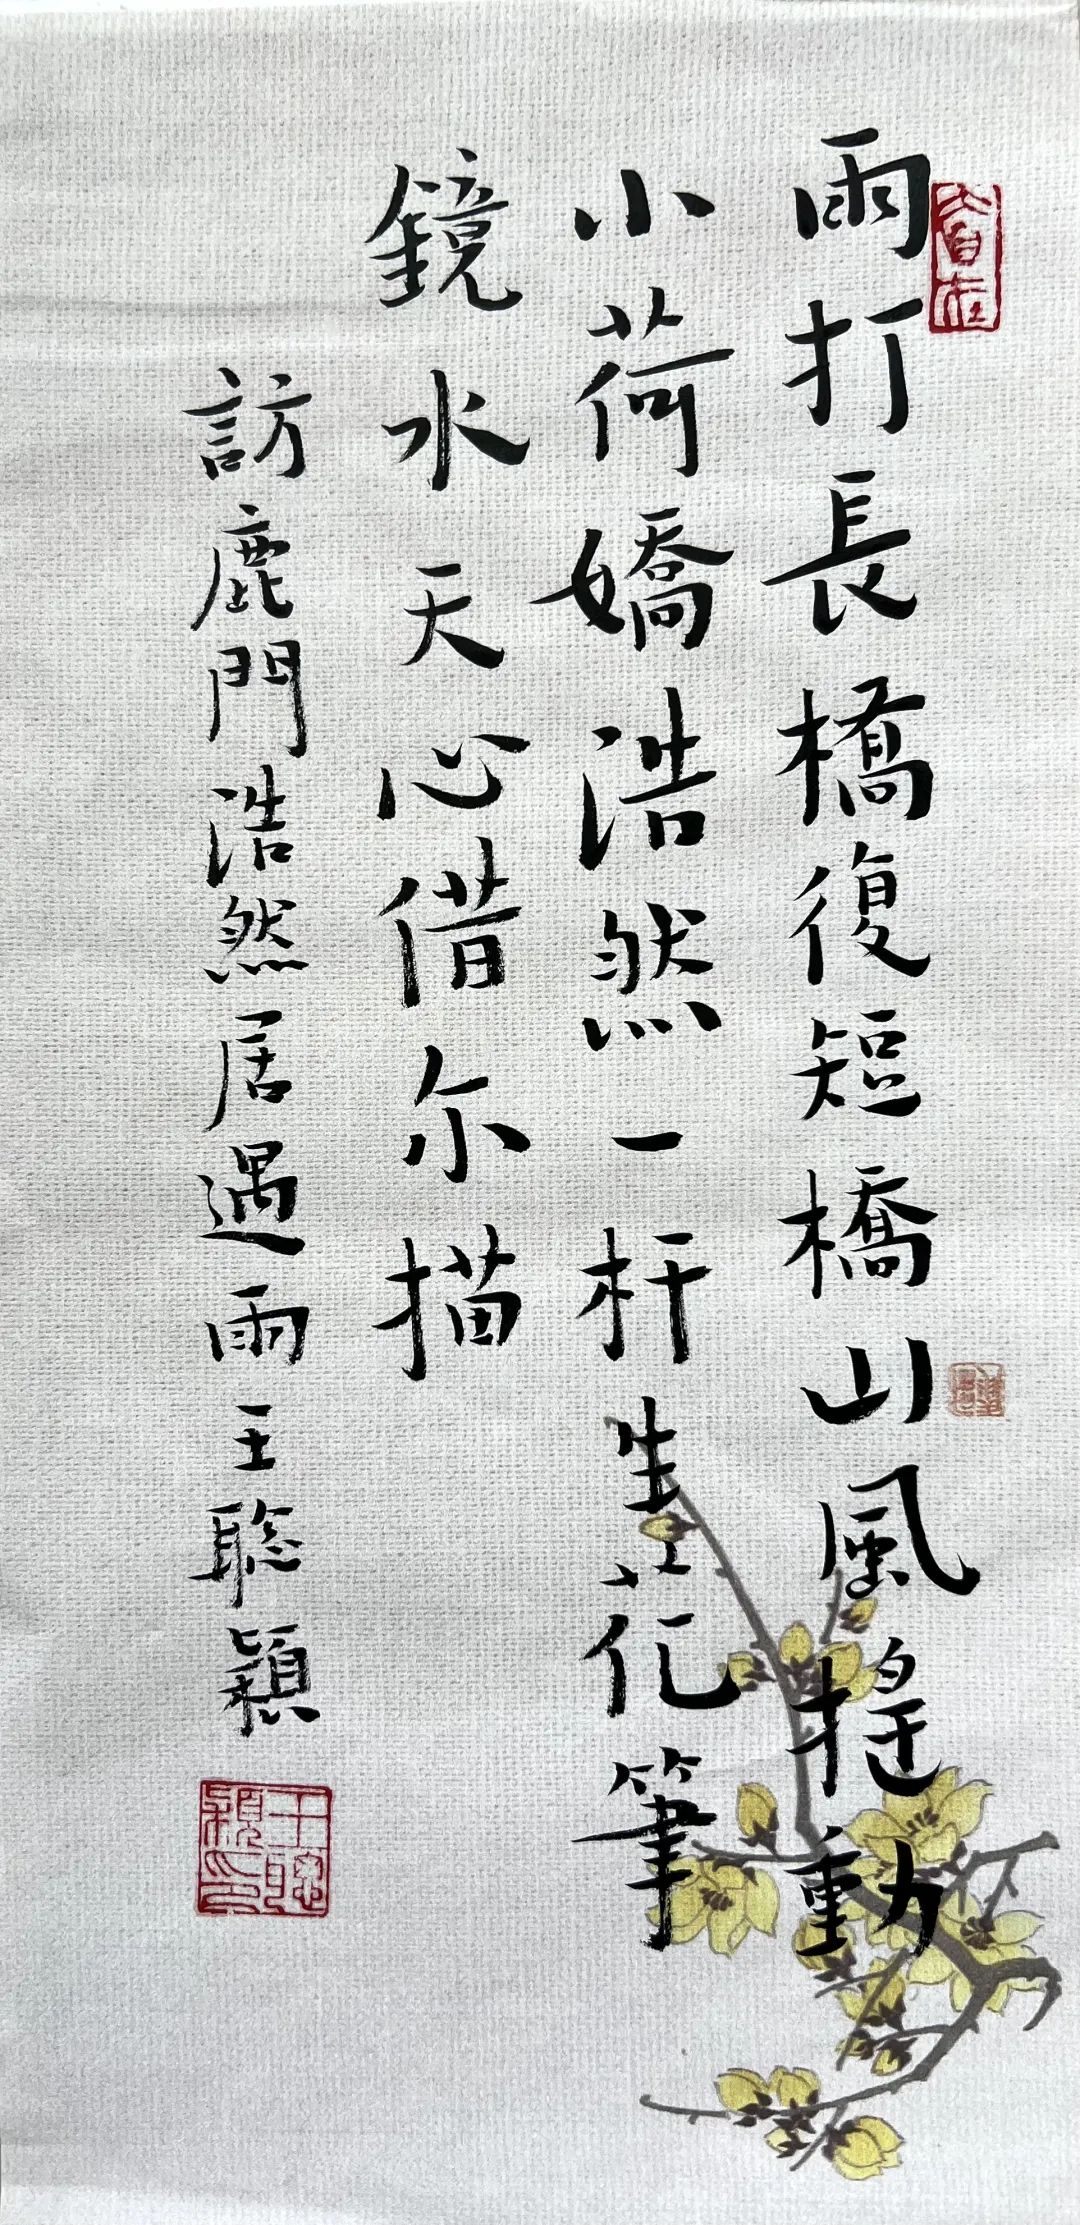 雨打長橋復短橋山風搖動
小荷嬌浩然一杆生花筆
鏡水天心借尔描
訪鹿門浩然居遇雨王聡穎